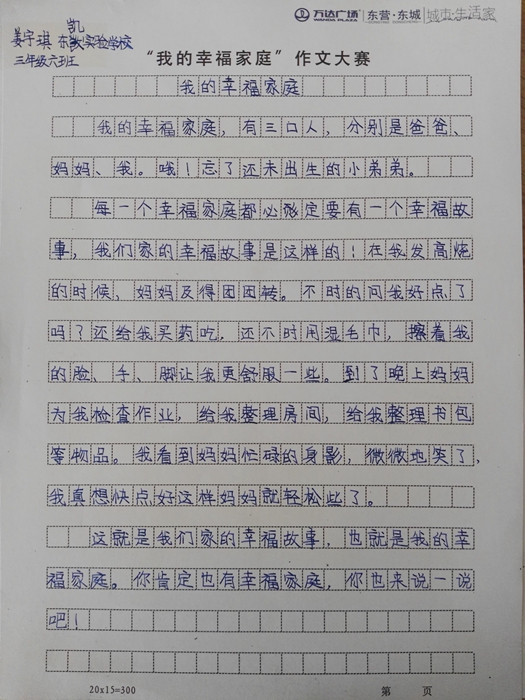 万达广场 WANDA PLAZA 东营·东城 城市·生活家
凯
姜宇琪 东实验学校
三年级六班
“我的幸福家庭”作文大赛
我的幸福家庭
我的幸福家庭，有三口人，分别是爸爸、
妈妈、我。哦！忘了还未出生的小弟弟。
每一个幸福家庭都必定要有一个幸福故
事，我们家的幸福故事是这样的！在我发高烧
的时候，妈妈及得团团转。不时的问我好点了
吗？还给我买药吃，还不时用湿毛巾，擦着我
的脸、手、脚让我更舒服一些。到了晚上妈妈
为我检查作业，给我整理房间，给我整理书包
等物品。我看到妈妈忙碌的身影，微微地笑了，
我真想快点好这样妈妈就轻松些了。
这就是我们家的幸福故事，也就是我的幸
福家庭。你肯定也有幸福家庭，你也来说一说
吧！
20x15=300 第 页